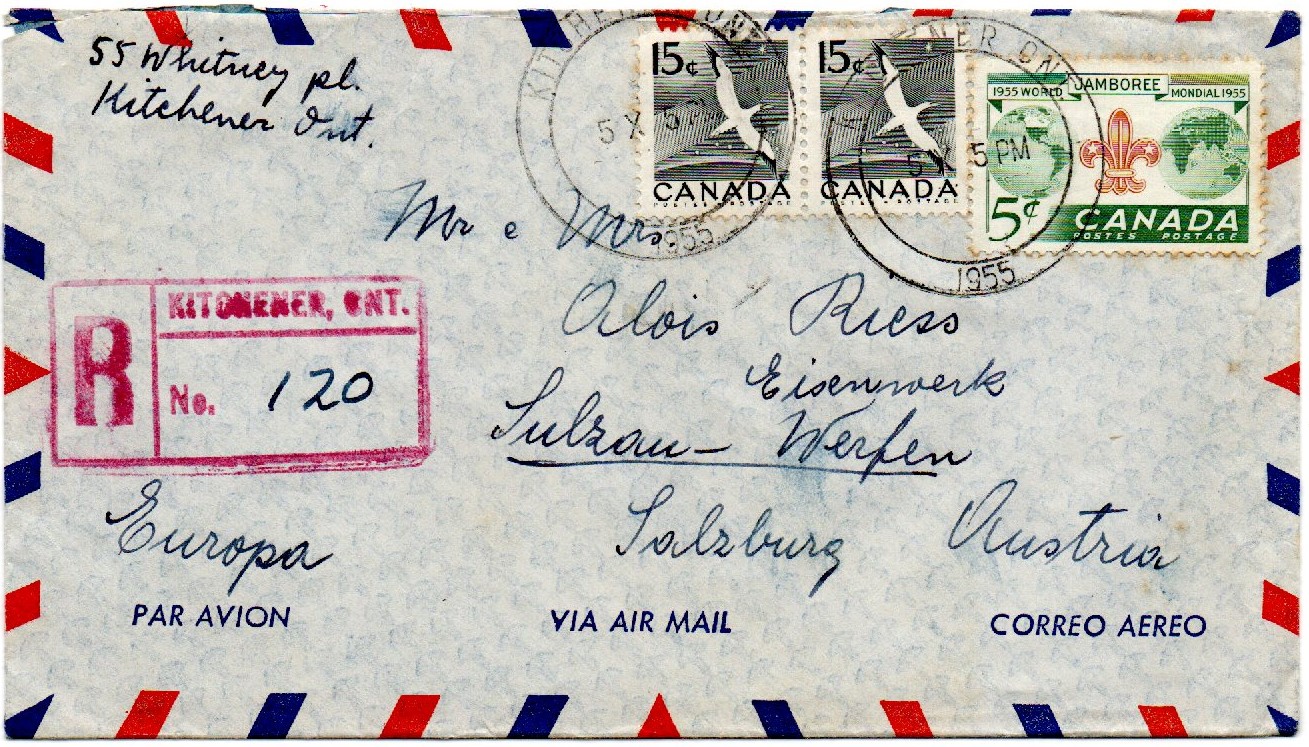 55 Whitney pl.
Kitchener Ont.
15¢
CANADA
POSTES POSTAGE
15¢
CANADA
POSTES POSTAGE
1955 WORLD JAMBOREE MONDIAL 1955
5¢
CANADA
POSTES POSTAGE
5 X
1955
5 X 5 PM
1955
Mr e Mrs
Alois Riess
Eisenwerk
Sulzau – Werfen
Salzburg Austria
Europa
R
KITCHENER, ONT.
No. 120
PAR AVION VIA AIR MAIL CORREO AEREO